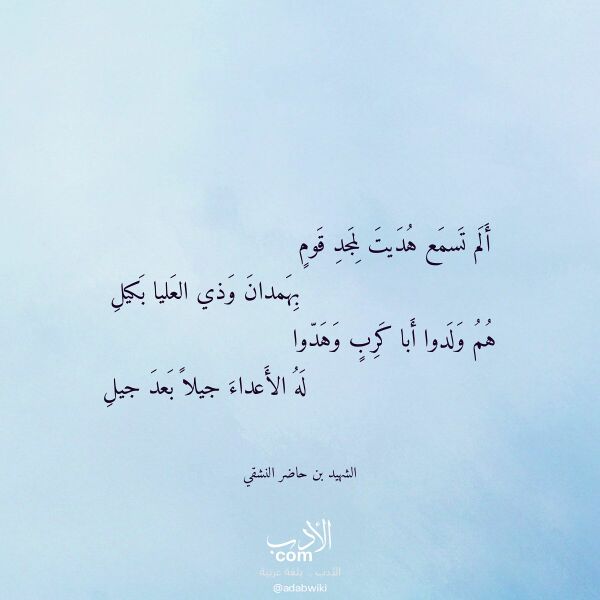 أَلَم تَسمَع هُدَيتَ لِمَجدِ قَومٍ
بِهَمدانَ وَذي العَليا بَكيلِ
هُمُ وَلَدوا أَبا كَرِبٍ وَهَدّوا
لَهُ الأَعداءَ جيلاً بَعدَ جيلِ
الشهيد بن حاضر النشقي
الأدب
com
الأدب .. بلغة عربية
@adabwiki